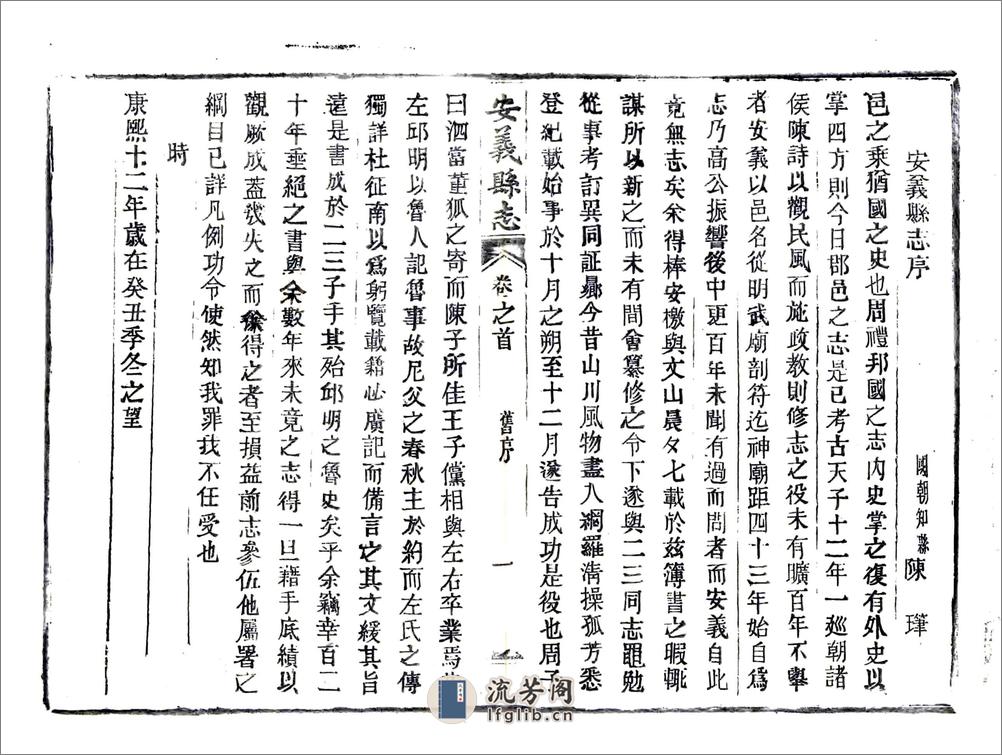 安義縣志序
國朝知縣陳　瑋
邑之乘猶國之史也周禮邦國之志內史掌之復有外史以
掌四方則今日郡邑之志是已考古天子十二年一廵朝諸
侯陳詩以觀民風而施政教則修志之役未有曠百年不舉
者安義以邑名從明武廟剖符迄神廟距四十三年始自爲
志乃高公振響後中更百年未聞有過而問者而安義自此
竟無志矣余得捧安檄與文山晨夕七載於兹簿書之暇輒
謀所以新之而未有間會纂修之令下遂與二三同志黽勉
從事考訂異同証㬥今昔山川風物盡入網羅清操孤芳悉
登紀載始事於十月之朔至十二月遂告成功是役也周子
安義縣志
卷之首
舊序
一
曰泗當董狐之寄而陳子所佳王子儻相與左右卒業焉
左邱明以魯人記魯事故尼父之春秋主於約而左氏之傳
獨詳杜征南以爲躬覽載籍必廣記而備言之其文緩其旨
遠是書成於二三子手其殆邱明之魯史矣乎余竊幸百二
十年垂絕之書與余數年來未竟之志得一旦藉手底績以
觀厥成蓋幾失之而條得之者至損益前志參伍他屬署之
綱目已詳凡例功令使然知我罪我不任受也
時
康熙十二年歲在癸丑季冬之望
流芳閣
lfglib.cn